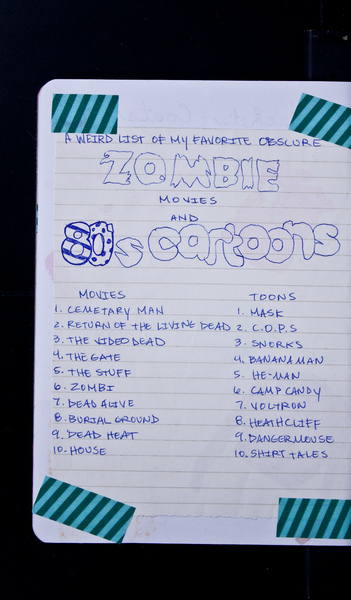 A WEIRD LIST OF MY FAVORITE OBSCURE
ZOMBIE
MOVIES
AND
80s cartoons
MOVIES
1. CEMETARY MAN
2. RETURN OF THE LIVING DEAD
3. THE VIDEO DEAD
4. THE GATE
5. THE STUFF
6. ZOMBI
7. DEAD ALIVE
8. BURIAL GROUND
9. DEAD HEAT
10. HOUSE
TOONS
1. MASK
2. C.O.P.S
3. SNORKS
4. BANANAMAN
5. HE-MAN
6. CAMP CANDY
7. VOLTRON
8. HEATHCLIFF
9. DANGERMOUSE
10. SHIRT TALES